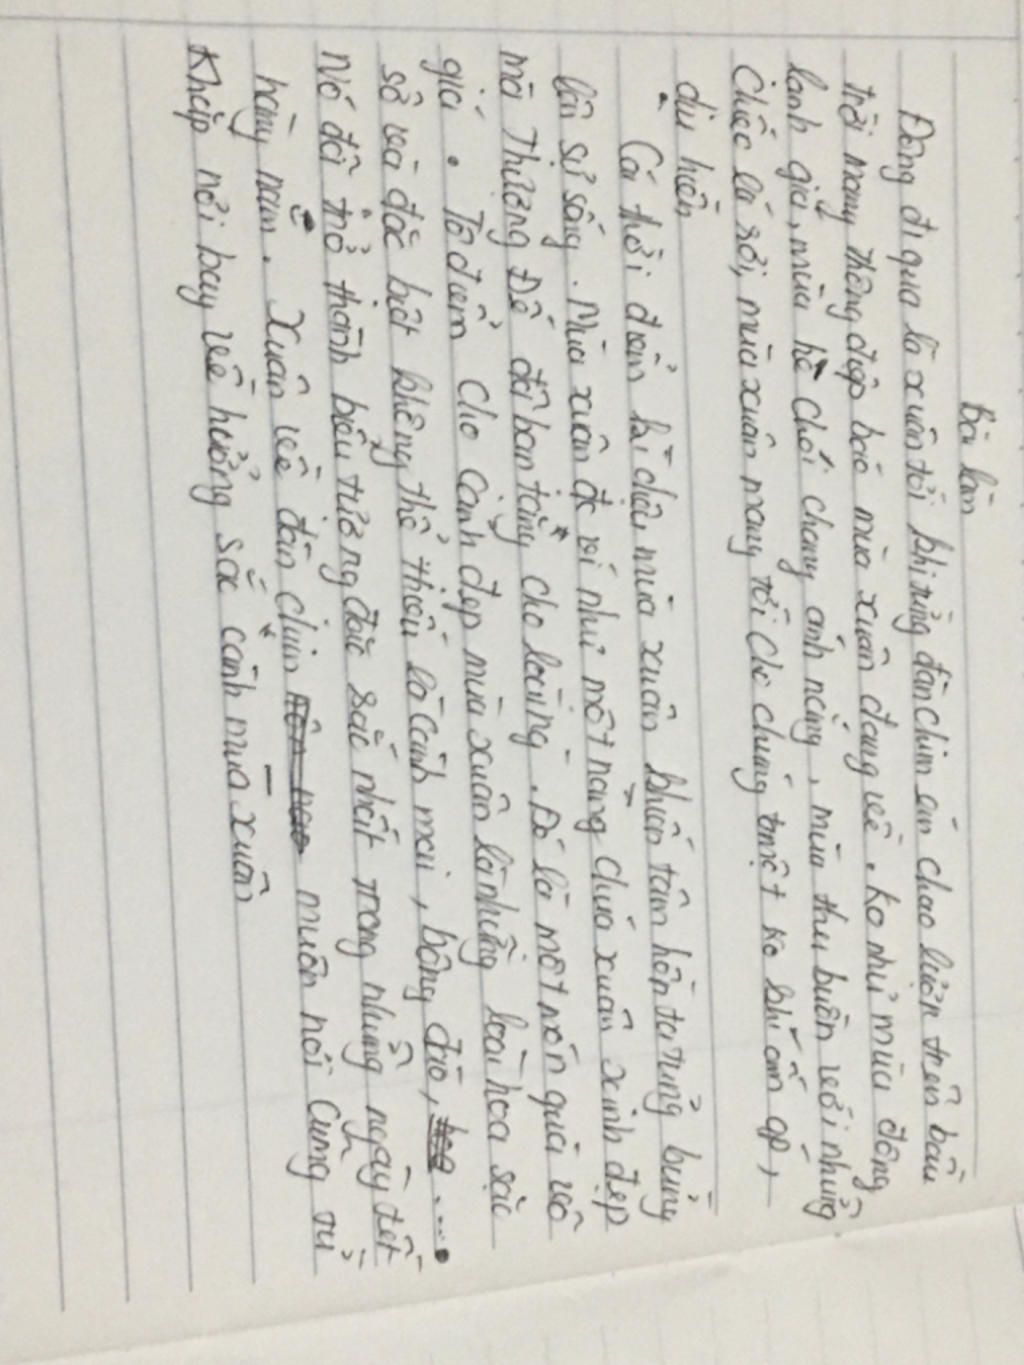 Bài làm
Đông đi qua là xuân tới khi từng đàn chim én chao lượn trên bầu
trời mang thông điệp báo mùa xuân đang về. Ko như mùa đông
lạnh giá, mùa hè chói chang ánh nắng, mùa thu buồn với những
chiếc lá rơi, mùa xuân mang tới cho chúng ta một ko khí ấm áp,
dịu hiền
Cái thời điểm là chiều mùa xuân khiến tâm hồn ta rừng bừng
lên sự sống. Mùa xuân đc ví như một nàng chúa xuân xinh đẹp
mà Thượng Đế đã ban tặng cho loài. Đó là một món quà vô
giá. Tô điểm cho cảnh đẹp mùa xuân là những loài hoa sặc
sỡ và đặc biệt không thể thiếu là cành mai, bông đào, ....
Nó đã trở thành biểu tượng đặc sắc nhất trong những ngày tết
hàng năm. Xuân về đàn chim muôn nơi cũng từ
khắp nơi bay về hưởng sắc cảnh mùa xuân